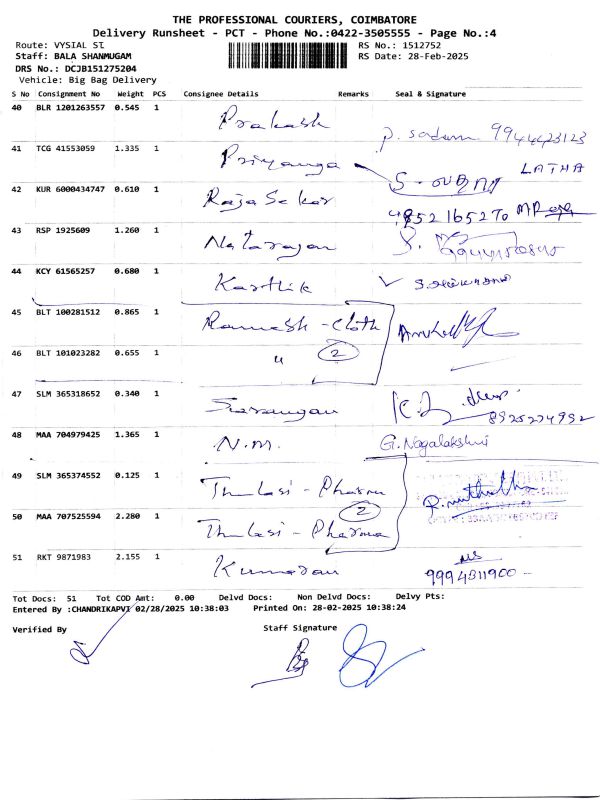 THE PROFESSIONAL COURIERS, COIMBATORE
Delivery Runsheet - PCT - Phone No.:0422-3505555 - Page No.:4
Route: VYSIAL ST
RS No.: 1512752
Staff: BALA SHANMUGAM
RS Date: 28-Feb-2025
DRS No.: DCJB151275204
Vehicle: Big Bag Delivery
S No Consignment No Weight PCS Consignee Details Remarks Seal & Signature
40 BLR 1201263557 0.545 1 Prakash 9944423123
41 TCG 41553059 1.335 1 Priyanga LATHA
42 KUR 6000434747 0.610 1 RajaSekar 9852165270
43 RSP 1925609 1.260 1 Natarajan
44 KCY 61565257 0.680 1 Karthik
45 BLT 100281512 0.865 1 Ramesh - Cloth
46 BLT 101023282 0.655 1 " 2
47 SLM 365318652 0.340 1 8925224992
48 MAA 704979425 1.365 1 N.M. G. Nagalakshmi
49 SLM 365374552 0.125 1 Thulasi - Pharma
2
50 MAA 707525594 2.280 1 Thulasi - Pharma
51 RKT 9871983 2.155 1 Kumaran
Tot Docs: 51 Tot COD Amt: 0.00 Delvd Docs: Non Delvd Docs: Delvy Pts:
Entered By :CHANDRIKAPVI 02/28/2025 10:38:03 Printed On: 28-02-2025 10:38:24
Verified By Staff Signature